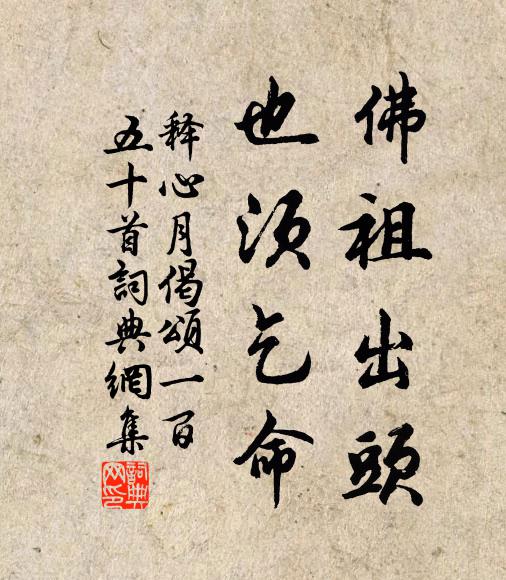 佛祖出頭
也須乞命
释心月偈頌一百
五十首詞典網集
詞典网印